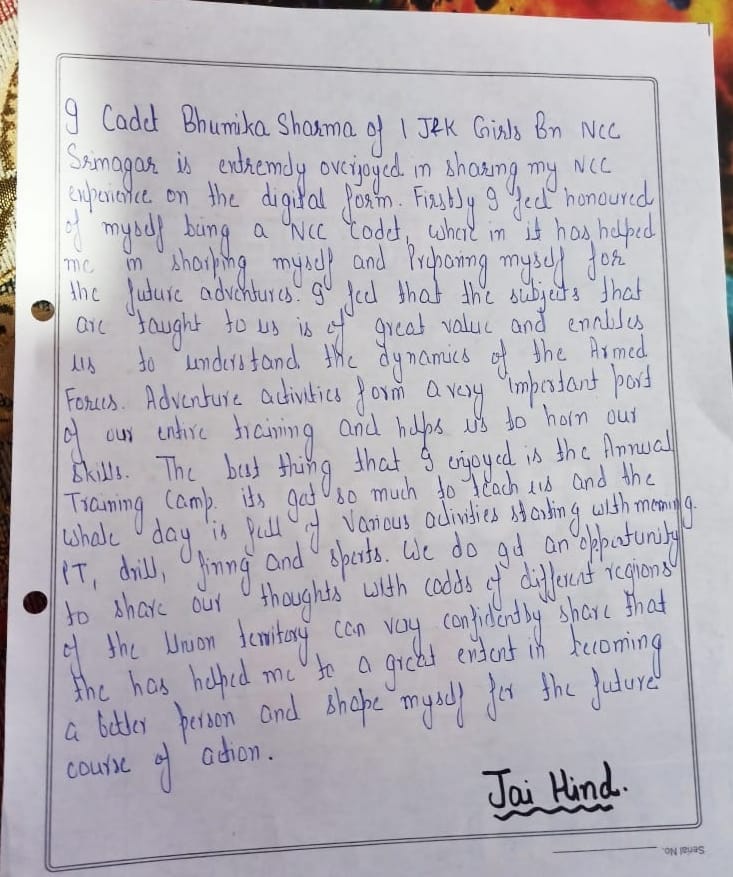 I Cadet Bhumika Sharma of 1 J&K Girls Bn NCC
Srinagar is extremely overjoyed in sharing my NCC
experience on the digital form. Firstly I feel honoured
of myself being a NCC Cadet, where in it has helped
me in sharping myself and Preparing myself for
the future adventures. I feel that the subjects that
are taught to us is of great value and enables
us to understand the dynamics of the Armed
Forces. Adventure activities form a very important part
of our entire training and helps us to horn our
skills. The best thing that I enjoyed is the Annual
Training Camp. its got so much to teach us and the
whole day is full of various activities starting with morning
PT, drill, firing and sports. We do get an opportunity
to share our thoughts with cadets of different regions
of the Union territory can very confidently share that
the has helped me to a great extent in becoming
a better person and shape myself for the future
course of action.
Jai Hind.
Serial No.